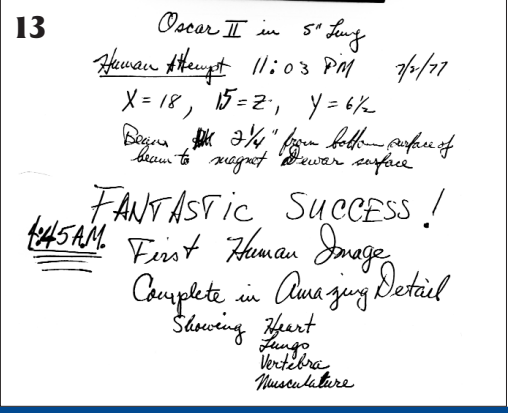 13
Oscar II in 5" Lung
Human Attempt 11:03 PM 7/2/77
X=18, 15=Z, Y=6½
Beam 2¼" from bottom surface of
beam to magnet Dewar surface
FANTASTIC SUCCESS!
4:45 A.M. First Human Image
Complete in Amazing Detail
Showing Heart
Lungs
Vertebra
Musculature